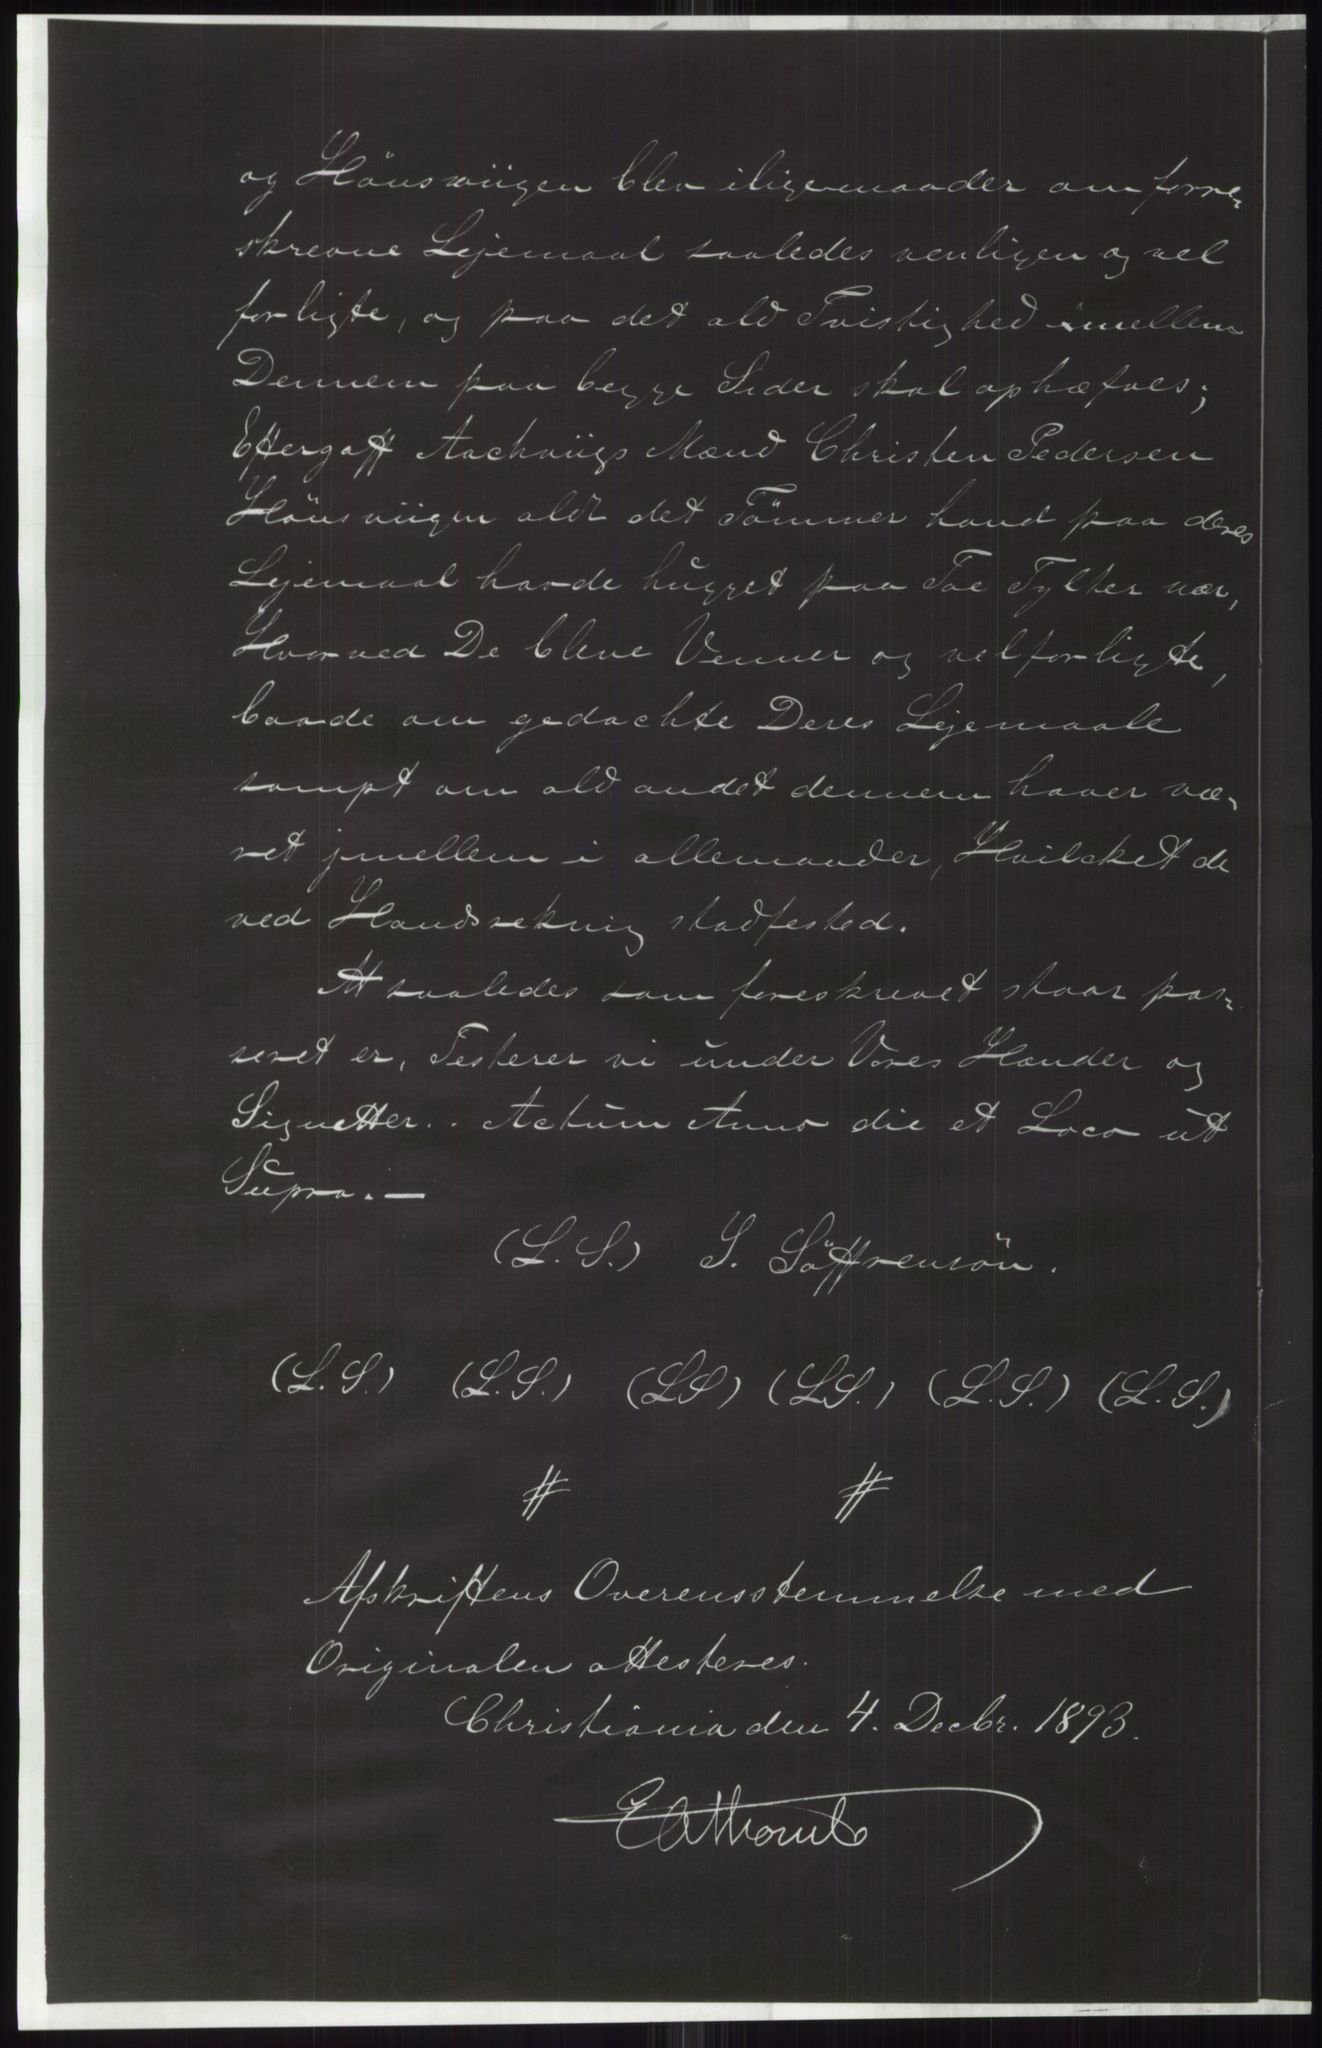 og Hönsviigen blev iligemaader om forre-
skrevne Lejemaal saaledes venligen og vel
forligte, og paa det ald Tvistighed imellem
Dennem paa begge Sider skal ophæfves;
Eftergaff Aachviigs Mænd Christen Pedersen
Hönsviigen aldt det Tömmer hand paa deres
Lejemaal havde hügget paa Toe Tylter nær,
Hvorved De bleve Venner og velforligte,
baade om gedachte Deres Lejemaale
sampt om ald andet dennem haver væ-
ret jmellem i allemaader, Hvilcket de
ved Handrekning stadfested.
At saaledes som foreskrevet staar pas-
seret er, Testerer vi ünder Vores Hænder og
Signetter.. Actüm Anno die et Loco üt
Süpra. —
(L.S.) S. Söffrensön.
(L.S.) (L.S.) (LS) (LS.) (L.S.) (L.S.)
# #
Afskriftens Overensstemmelse med
Originalen attesteres.
Christiania den 4. Decbr. 1893.